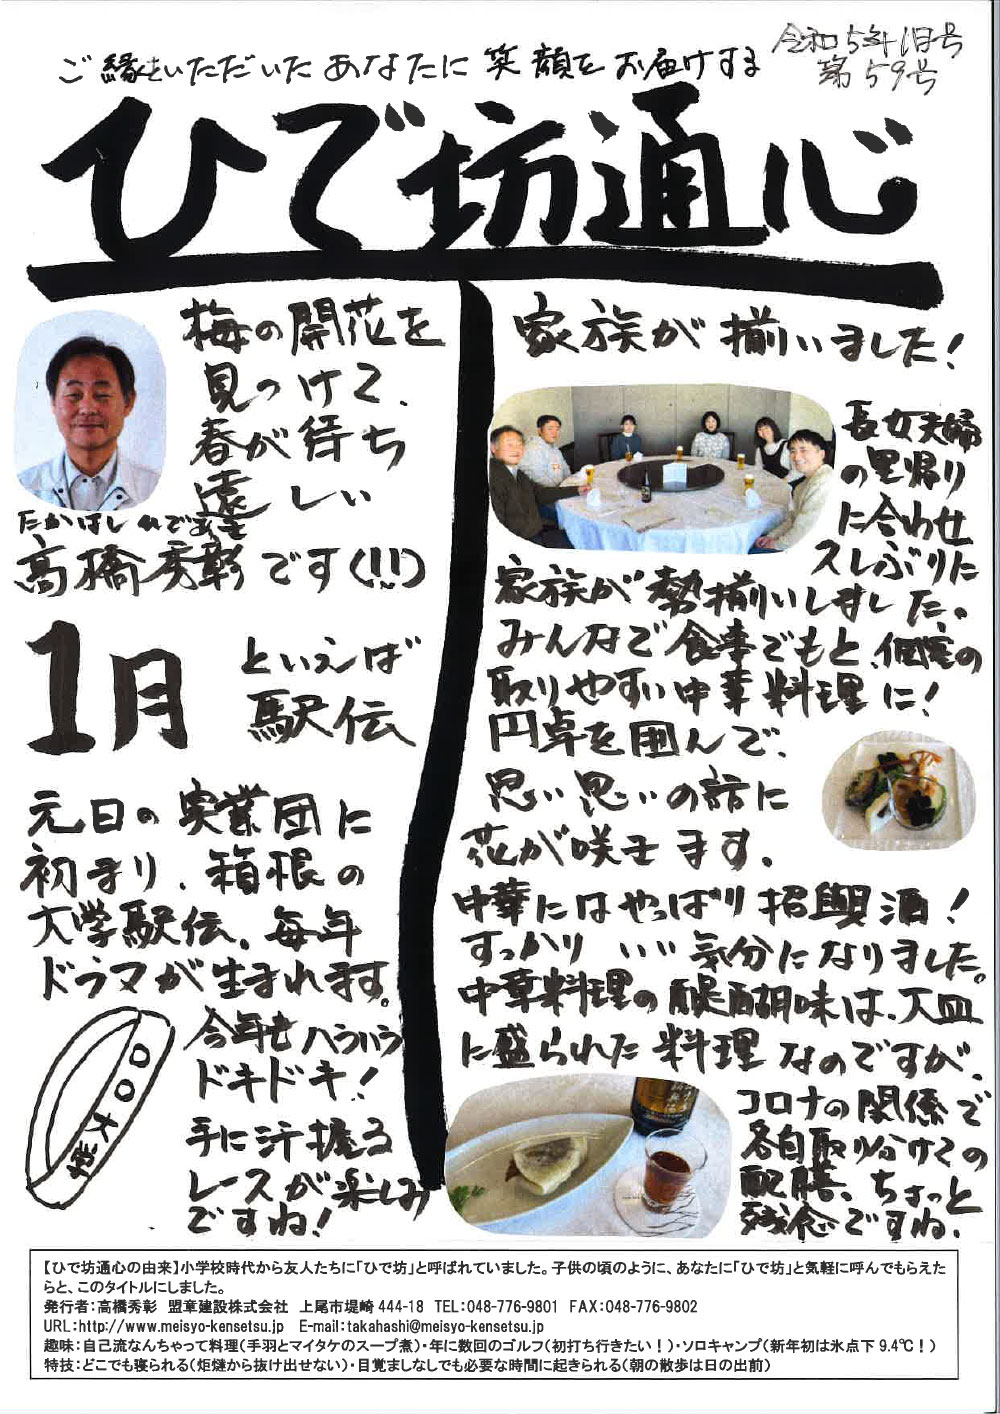 ご縁をいただいたあなたに笑顔をお届けする
令和5年1月号
第59号
ひで坊通心
梅の開花を
見つけて、
春が待ち
遠しい
たかはし ひであき
高橋秀彰です(!!)
1月
といえば
駅伝
元日の実業団に
初まり、箱根の
大学駅伝。毎年
ドラマが生まれます。
今年もハラハラ
ドキドキ!
手に汗握る
レースが楽しみ
ですね!
〇〇大学
家族が揃いました!
長女夫婦
の里帰り
に合わせ
久しぶりに
家族が勢揃いしました。
みんなで食事でもと、個室の
取りやすい中華料理に!
円卓を囲んで、
思い思いの話に
花が咲きます。
中華にはやっぱり招興酒!
すっかりいい気分になりました。
中華料理の醍醐味は、大皿
に盛られた料理なのですが、
コロナの関係で
各自取り分けての
配膳、ちょっと
残念ですね。
【ひで坊通心の由来】小学校時代から友人たちに「ひで坊」と呼ばれていました。子供の頃のように、あなたに「ひで坊」と気軽に呼んでもらえた
らと、このタイトルにしました。
発行者:高橋秀彰 盟章建設株式会社 上尾市堤崎444-18 TEL:048-776-9801 FAX:048-776-9802
URL:http://www.meisyo-kensetsu.jp E-mail:takahashi@meisyo-kensetsu.jp
趣味:自己流なんちゃって料理(手羽とマイタケのスープ煮)・年に数回のゴルフ(初打ち行きたい!)・ソロキャンプ(新年初は氷点下9.4℃!)
特技:どこでも寝られる(炬燵から抜け出せない)・目覚ましなしでも必要な時間に起きられる(朝の散歩は日の出前)